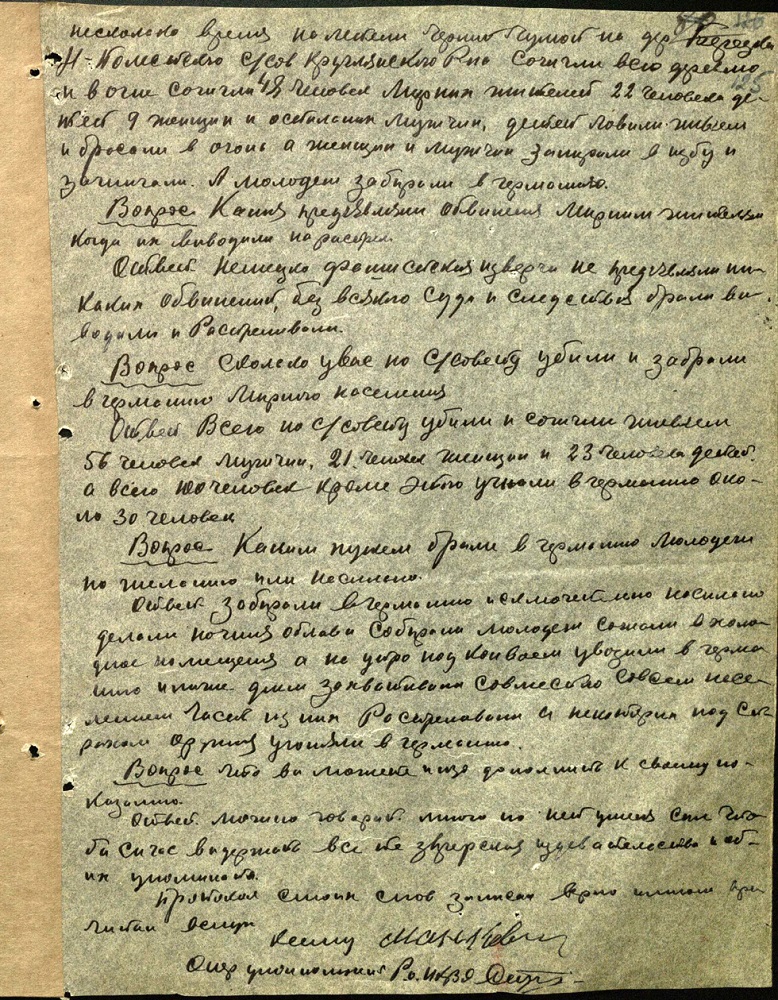 несколько время налетели черной тучой на дер. Терезка
Н- С/сов Круглянского Р-на сожгли всю деревню
и в огне сожгли 48 человек мирних жителей 22 человека де-
тей 9 женщин и остальних мужчин, детей ловили живем
и бросали в огонь а женщин и мужчин запирали в избу и
зажигали. А молодеж забирали в германию.
Вопрос Какия предъявляли обвинения мирним жителям
когда их виводили на растрел.
Ответ Немецко фашистския изверги не предъявляли ни-
каких обвинений, без всякого суда и следствия брали ви-
водили и Растреливали.
Вопрос Сколько у вас по С/совету убили и забрали
в германию мирного населения
Ответ Всего по С/совету убили и сожгли живем
56 человек мужчин, 21 человек женщин и 23 человека детей.
а всего 100 человек кроме этого угнали в германию око-
ло 30 человек
Вопрос Каким путем брали в германию молодеж
по желанию или насильно.
Ответ Забирали в германию исключительно насильно
делали ночния облави собирали молодеж сажали в холо-
дное помещения а на утро под конваем уводили в герма
нию и также днем захвативали совместно со всем насе-
лением часть из них Растреливали а некоторих под
оружия угоняли в германию.
Вопрос Что ви можете ище дополнить к своему по-
казанию.
Ответ можно говорить много но нет у меня сил что
би сичас видержать все те зверския издевательства и об-
их упоминать.
Протокол с моих слов записан верно и мною про
читан
к сему
Опер уполномочений Р.о. НКВД